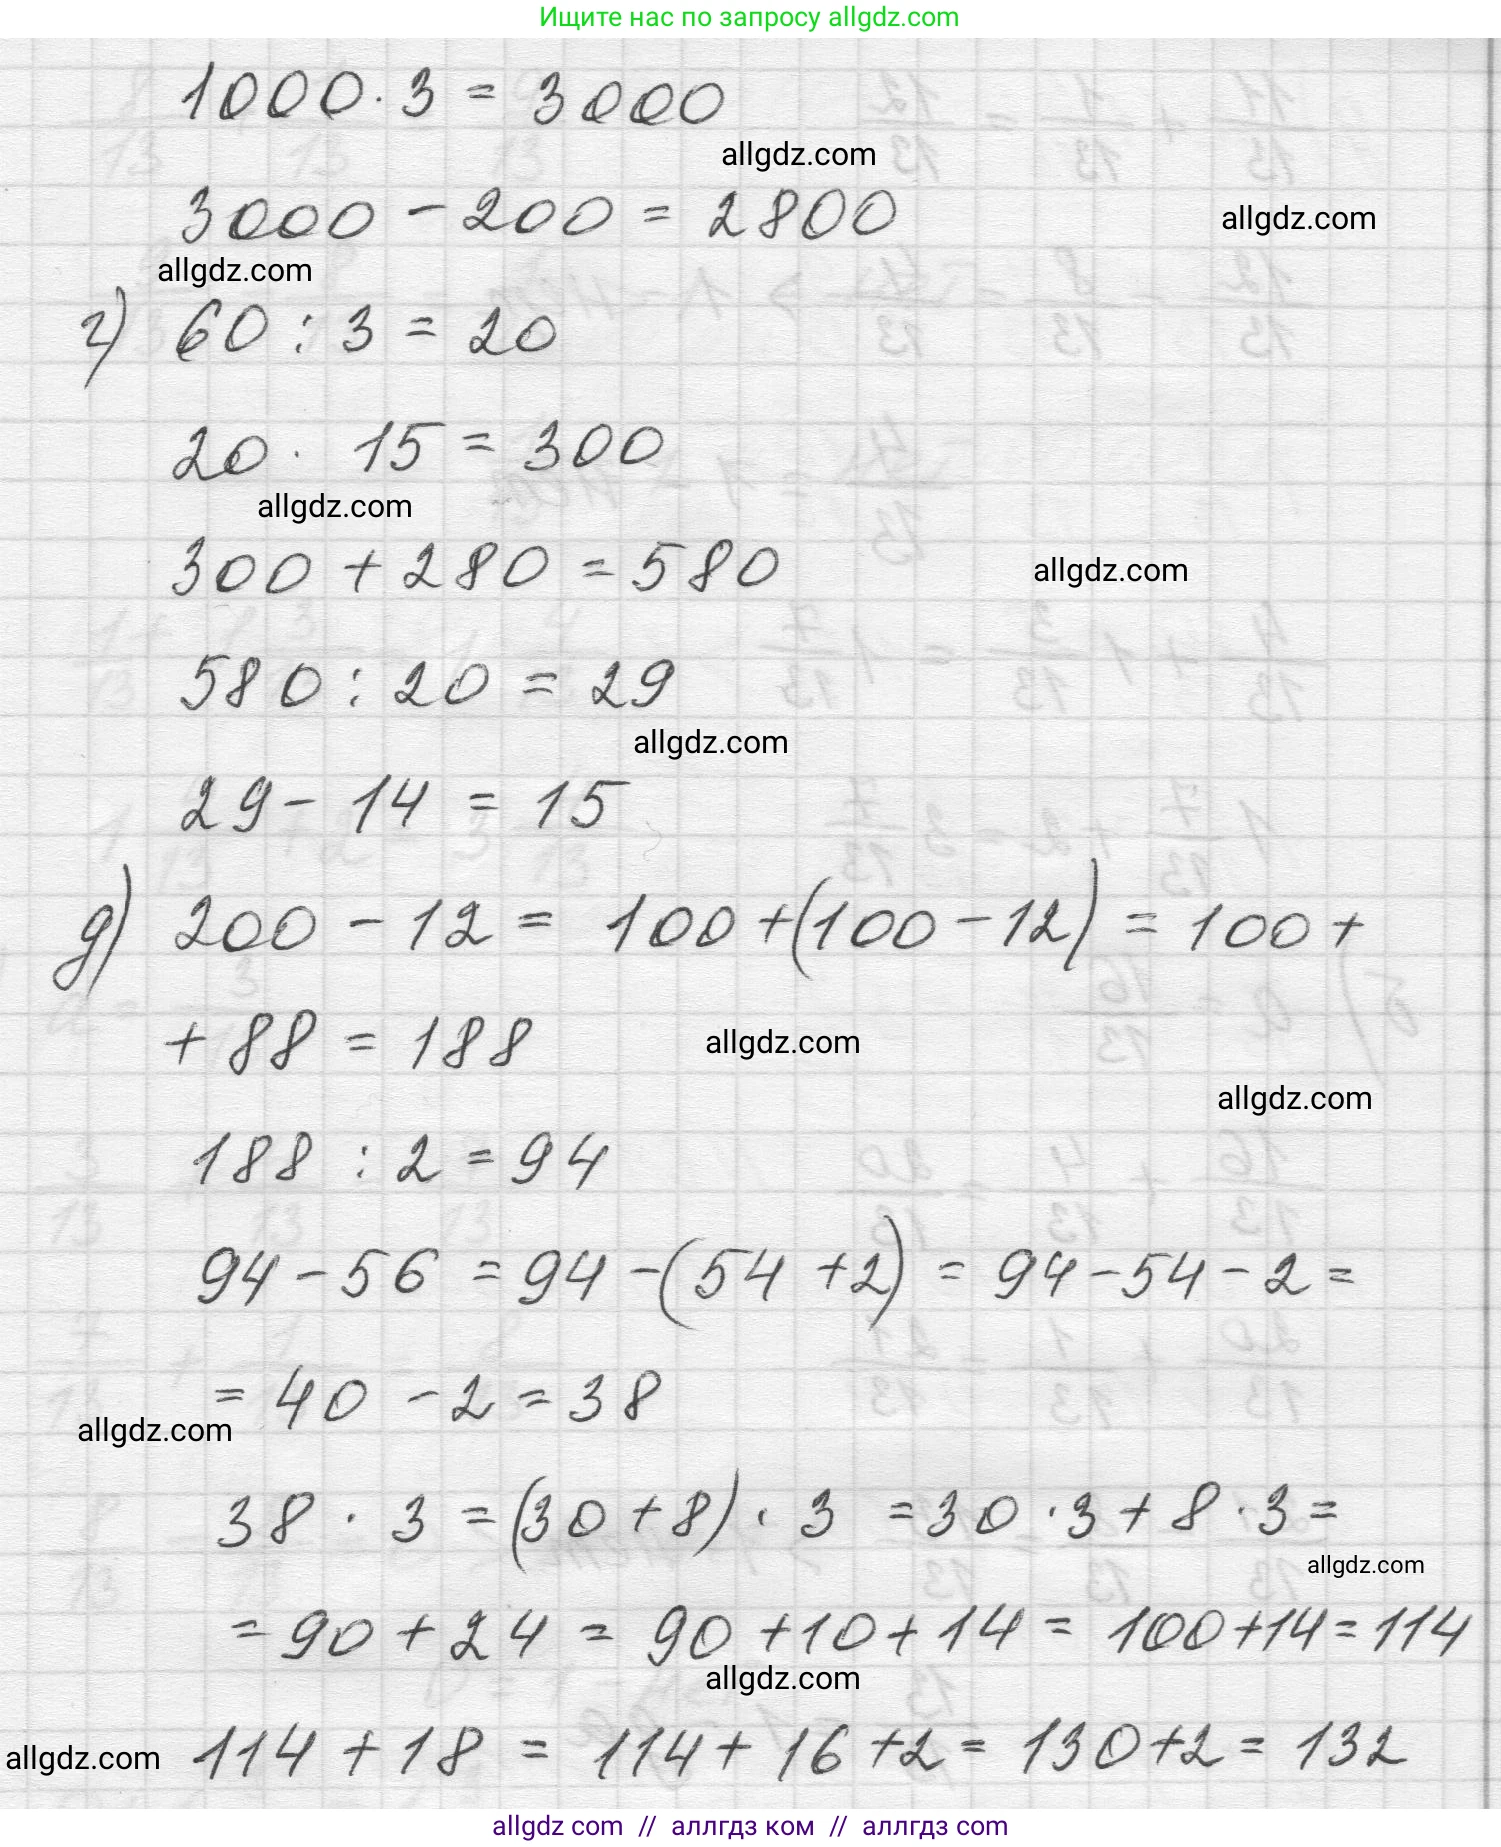 Ищите нас по запросу allgdz.com
1000 · 3 = 3000
allgdz.com
3000 - 200 = 2800
allgdz.com
allgdz.com
г) 60 : 3 = 20
20 · 15 = 300
allgdz.com
300 + 280 = 580
allgdz.com
580 : 20 = 29
allgdz.com
29 - 14 = 15
д) 200 - 12 = 100 + (100 - 12) = 100 +
+ 88 = 188
allgdz.com
allgdz.com
188 : 2 = 94
94 - 56 = 94 - (54 + 2) = 94 - 54 - 2 =
= 40 - 2 = 38
allgdz.com
38 · 3 = (30 + 8) · 3 = 30 · 3 + 8 · 3 =
allgdz.com
= 90 + 24 = 90 + 10 + 14 = 100 + 14 = 114
allgdz.com
allgdz.com
114 + 18 = 114 + 16 + 2 = 130 + 2 = 132
allgdz.com // аллгдз ком // аллгдз com